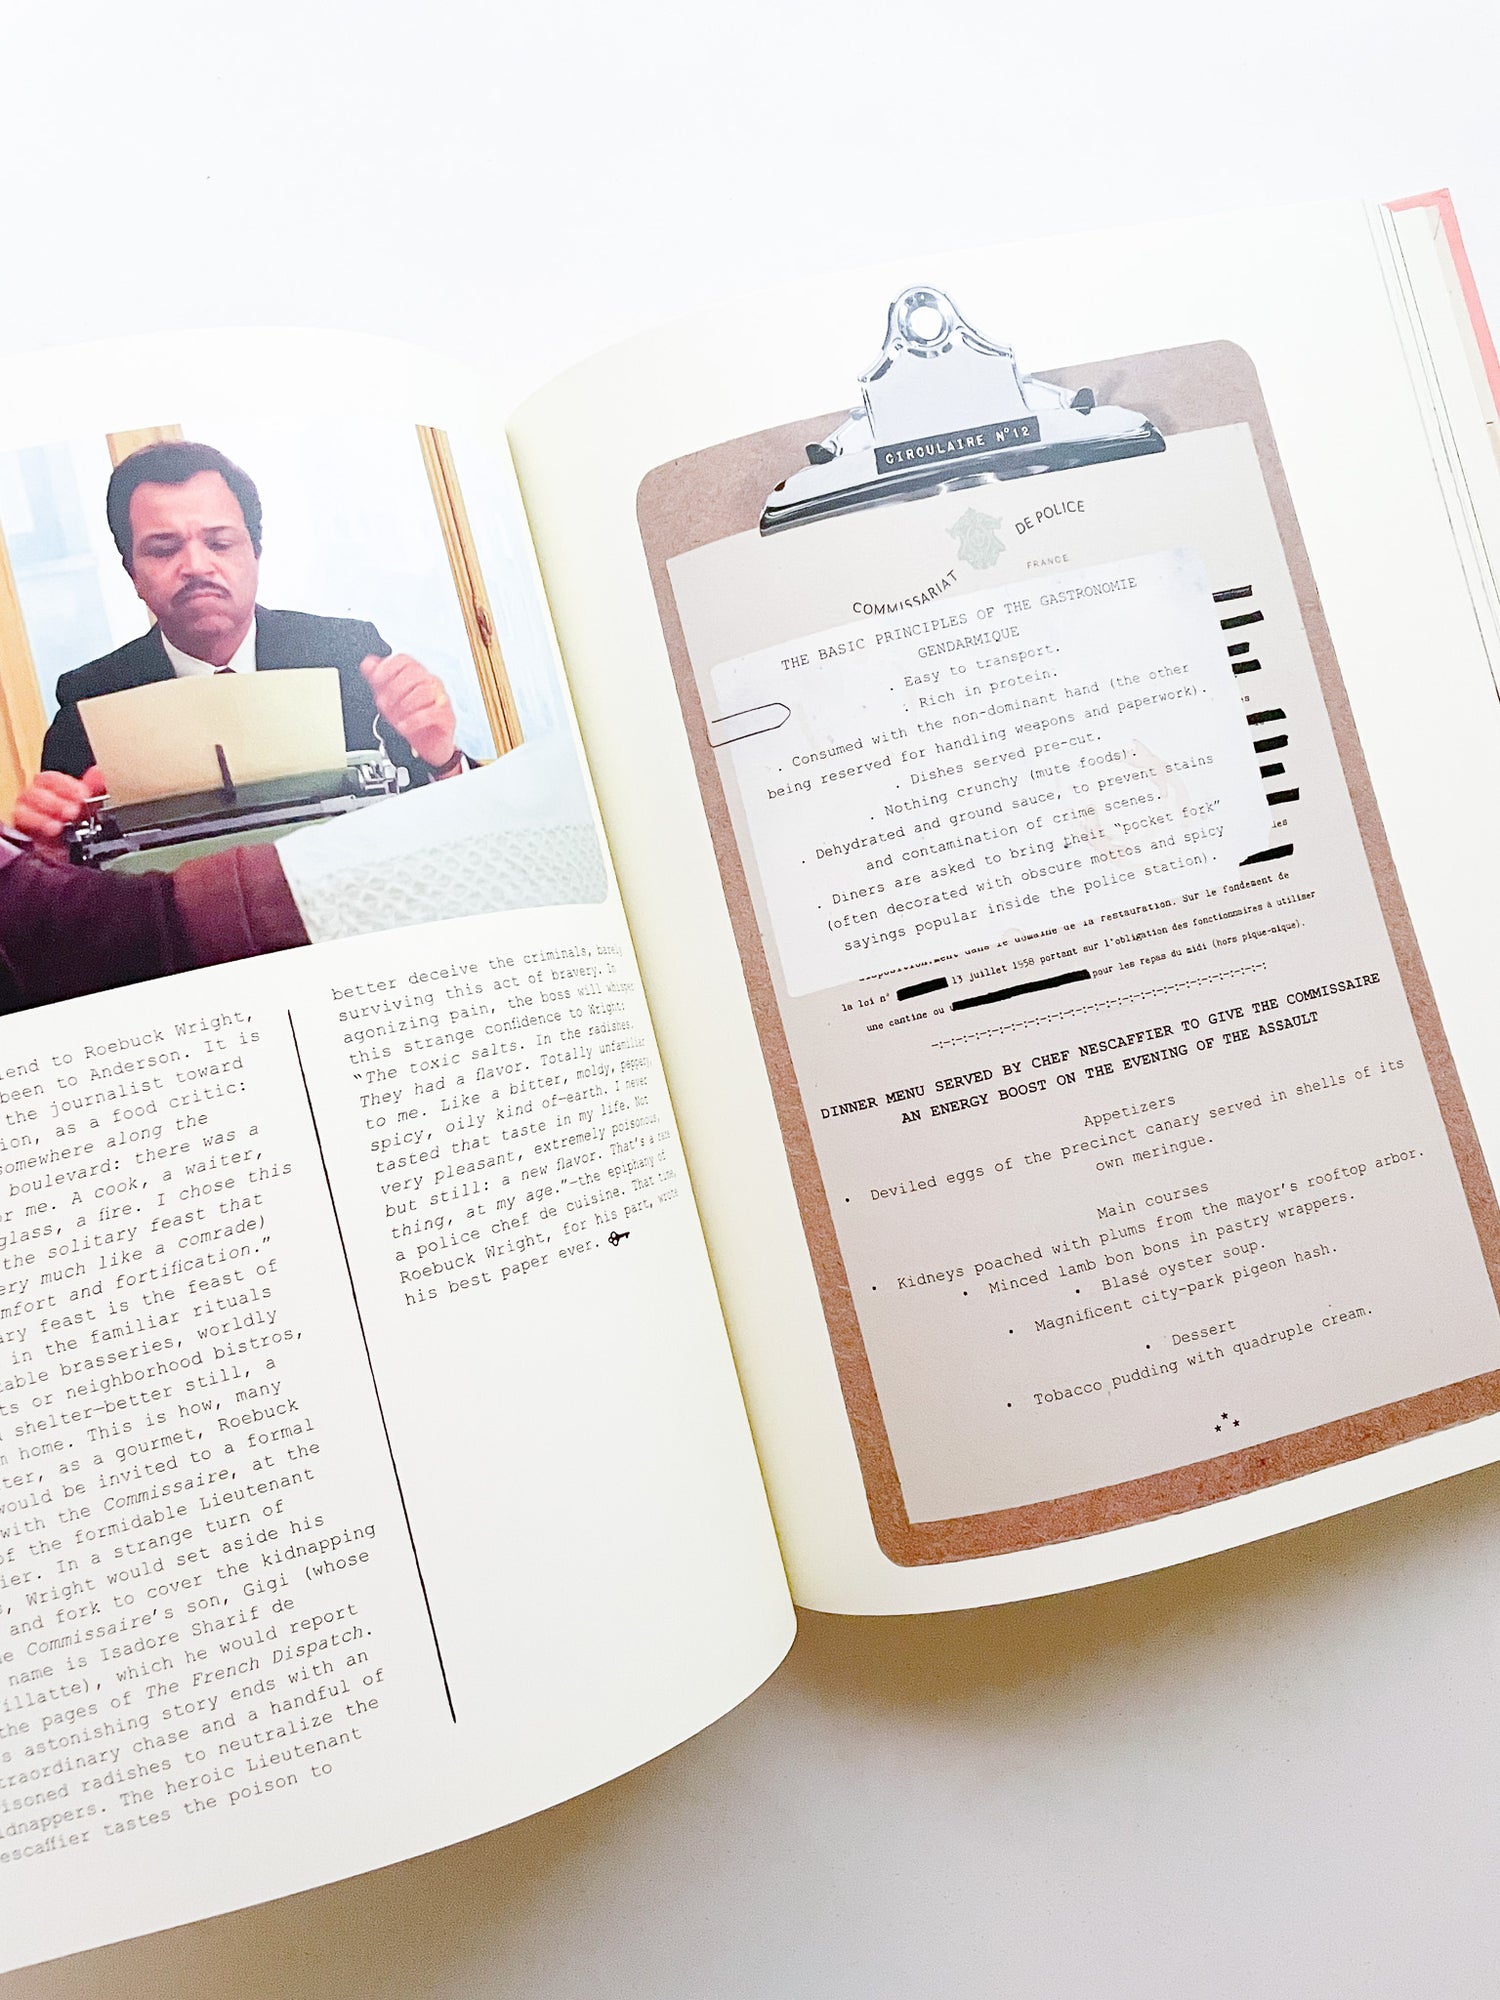 lend to Roebuck Wright,
been to Anderson. It is
the journalist toward
ion, as a food critic:
somewhere along the
boulevard: there was a
or me. A cook, a waiter,
glass, a fire. I chose this
the solitary feast that
ery much like a comrade)
mfort and fortification."
ary feast is the feast of
in the familiar rituals
table brasseries, worldly
ts or neighborhood bistros,
shelter—better still, a
m home. This is how, many
ter, as a gourmet, Roebuck
would be invited to a formal
with the Commissaire, at the
of the formidable Lieutenant
ier. In a strange turn of
s, Wright would set aside his
and fork to cover the kidnapping
e Commissaire's son, Gigi (whose
name is Isadore Sharif de
illatte), which he would report
the pages of The French Dispatch.
s astonishing story ends with an
traordinary chase and a handful of
isoned radishes to neutralize the
idnappers. The heroic Lieutenant
escaffier tastes the poison to
better deceive the criminals, barely
surviving this act of bravery. In
agonizing pain, the boss will whisper
this strange confidence to Wright:
"The toxic salts. In the radishes.
They had a flavor. Totally unfamiliar
to me. Like a bitter, moldy, peppery,
spicy, oily kind of—earth. I never
tasted that taste in my life. Not
very pleasant, extremely poisonous,
but still: a new flavor. That's a rare
thing, at my age."—the epiphany of
a police chef de cuisine. That time,
Roebuck Wright, for his part, wrote
his best paper ever.
CIRCULAIRE N°12
COMMISSARIAT DE POLICE
FRANCE
THE BASIC PRINCIPLES OF THE GASTRONOMIE
GENDARMIQUE
. Easy to transport.
. Rich in protein.
. Consumed with the non-dominant hand (the other
being reserved for handling weapons and paperwork).
. Dishes served pre-cut.
. Nothing crunchy (mute foods).
. Dehydrated and ground sauce, to prevent stains
and contamination of crime scenes.
. Diners are asked to bring their "pocket fork"
(often decorated with obscure mottos and spicy
sayings popular inside the police station).
dans le domaine de la restauration. Sur le fondement de
la loi n° 13 juillet 1958 portant sur l'obligation des fonctionnaires à utiliser
une cantine ou pour les repas du midi (hors pique-nique).
-:-:-:-:-:-:-:-:-:-:-:-:-:-:-:-:-:-:-:-:-
DINNER MENU SERVED BY CHEF NESCAFFIER TO GIVE THE COMMISSAIRE
AN ENERGY BOOST ON THE EVENING OF THE ASSAULT
Appetizers
• Deviled eggs of the precinct canary served in shells of its
own meringue.
Main courses
• Kidneys poached with plums from the mayor's rooftop arbor.
• Minced lamb bon bons in pastry wrappers.
• Blasé oyster soup.
• Magnificent city-park pigeon hash.
• Dessert
• Tobacco pudding with quadruple cream.